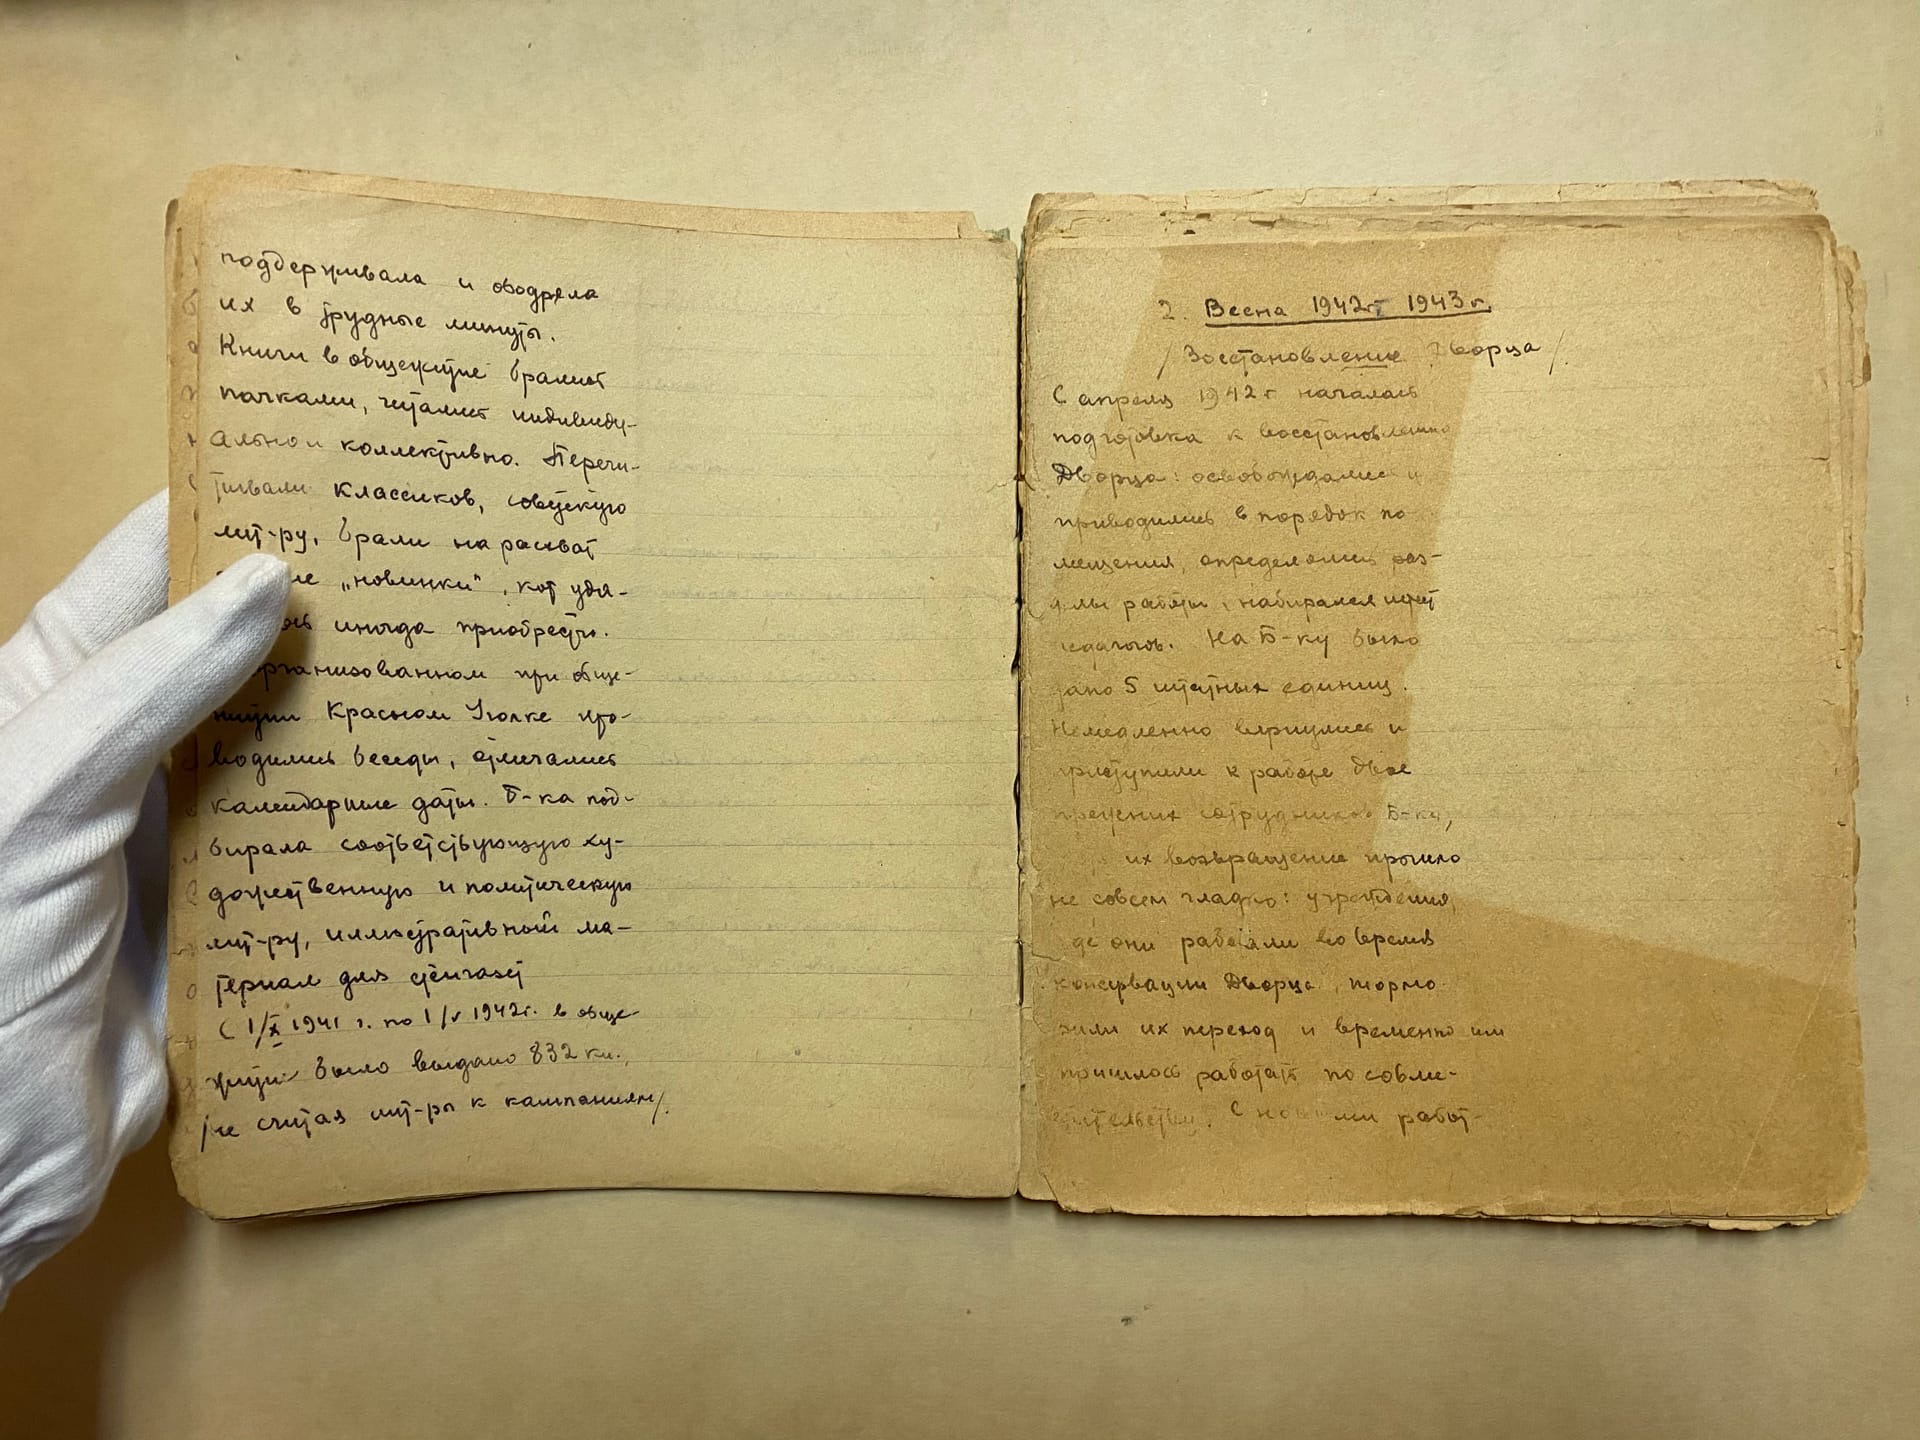 поддерживала и ободряла
их в трудные минуты.
Книги в общежитие брались
пачками, читались индивиду-
ально и коллективно. Перечи-
тывали классиков, советскую
лит-ру, брали на расхват
„новинки", кот. уда-
иногда приобрести.
организованном при обще-
житии Красном Уголке про-
водились беседы, отмечались
календарные даты. Б-ка под-
бирала соответствующую ху-
дожественную и политическую
лит-ру, иллюстративный ма-
териал для стенгазет
( 1/X 1941 г. по 1/V 1942г. в обще-
житии было выдано 832 кн.,
/не считая лит-ры к кампаниям/.
2. Весна 1942г 1943 г.
/ Восстановление Дворца /.
С апреля 1942 г началась
подготовка к восстановлению
Дворца: освобождались и
приводились в порядок по
мещения, определялись раз-
делы работы, набирался штат
педагогов. На Б-ку было
дано 5 штатных единиц.
Немедленно вернулись и
приступили к работе двое
прежних сотрудников Б-ки,
их возвращение прошло
не совсем гладко: учреждения,
где они работали во время
консервации Дворца, тормо
зили их переход и временно им
пришлось работать по совме-
стительству. С работ-